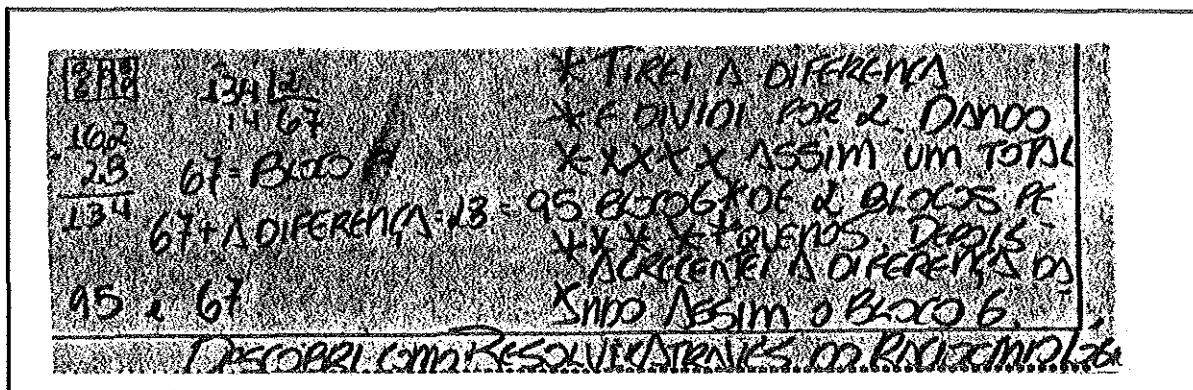 134 2
14 67
162
28
134
67 = BLOCO A
67 + A DIFERENÇA = 28 = 95 BLOCO G
95 e 67
* TIREI A DIFERENÇA
* E DIVIDI POR 2. DANDO
X X X X X ASSIM UM TOTAL
X DE 2 BLOCOS PE
X X X X X QUENOS. DEPOIS
ACRECENTEI A DIFERENÇA DA
XNDO ASSIM O BLOCO G.
DESCOBRI COMO RESOLVER ATRAVES DO